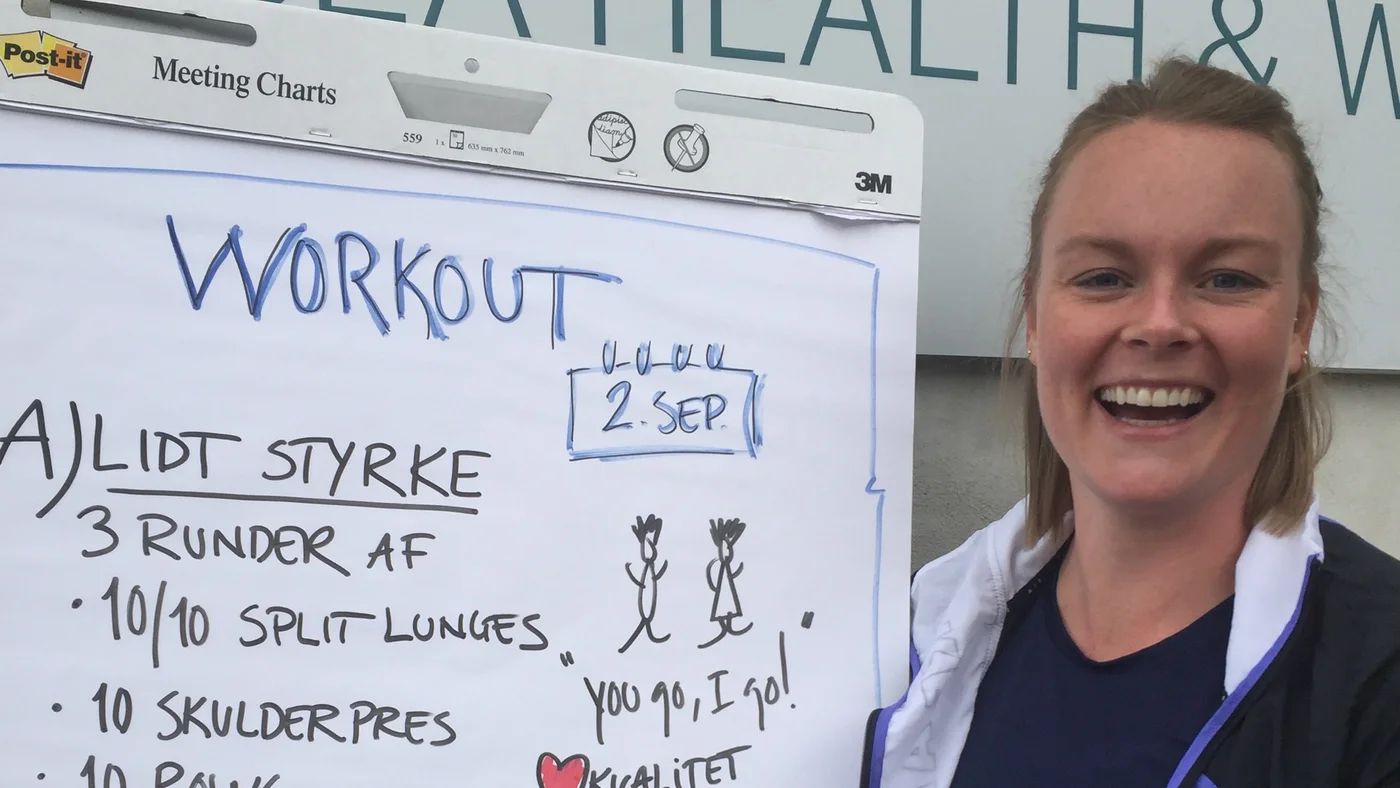 HEALTH & W
Post-it
Meeting Charts
559
1 x
635 mm x 762 mm
3M
WORKOUT
2. SEP.
A) LIDT STYRKE
3 RUNDER AF
• 10/10 SPLIT LUNGES
• 10 SKULDERPRES
• 10
"YOU go, I go!"
KVALITET